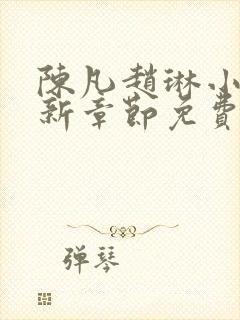 陳凡趙琳小
新章節免費
彈琴